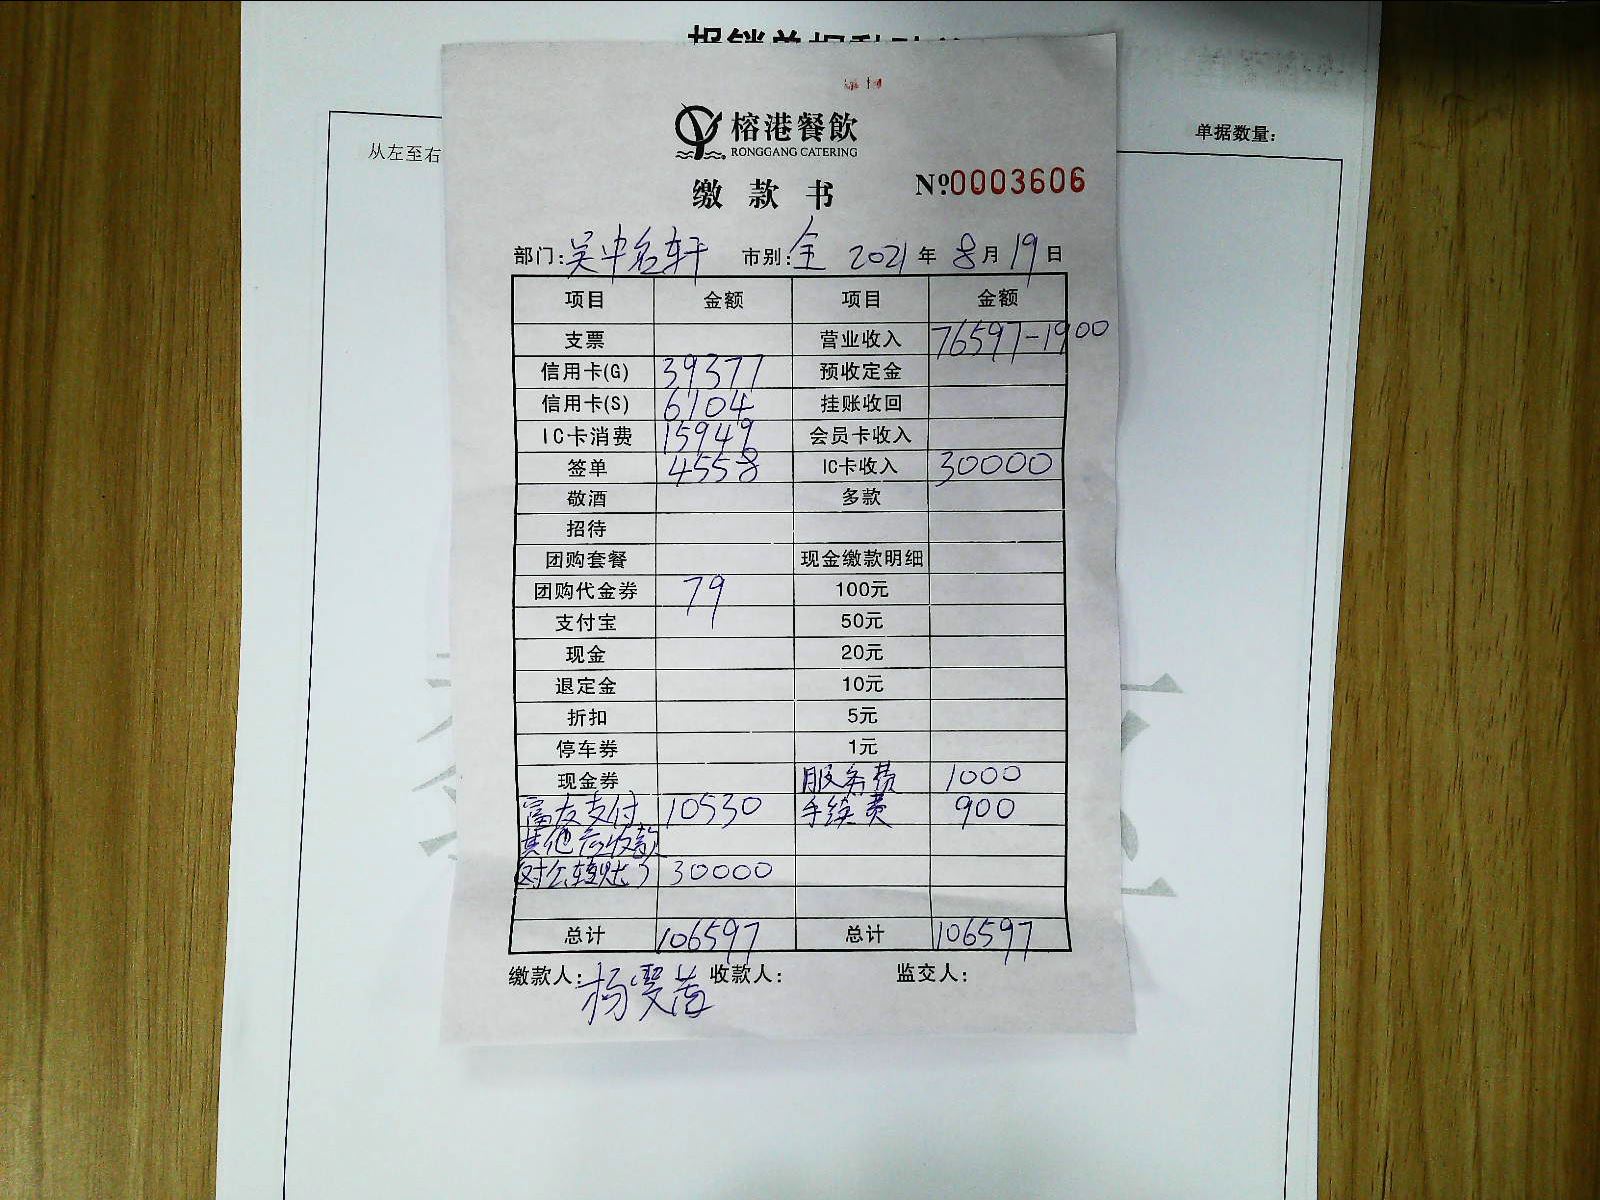 从左至右
单据数量:
榕港餐飲
RONGGANG CATERING
缴款书
Nº0003606
部门:吴中名轩 市别:全 2021年8月19日
项目 金额 项目 金额
支票 营业收入 76597-1900
信用卡(G) 39377 预收定金
信用卡(S) 6104 挂账收回
IC卡消费 15949 会员卡收入
签单 4558 IC卡收入 30000
敬酒 多款
招待
团购套餐 现金缴款明细
团购代金券 79 100元
支付宝 50元
现金 20元
退定金 10元
折扣 5元
停车券 1元
现金券 服务费 1000
富友支付 10530 手续费 900
其他应收款
(对公转账) 30000
总计 106597 总计 106597
缴款人:杨 收款人: 监交人: